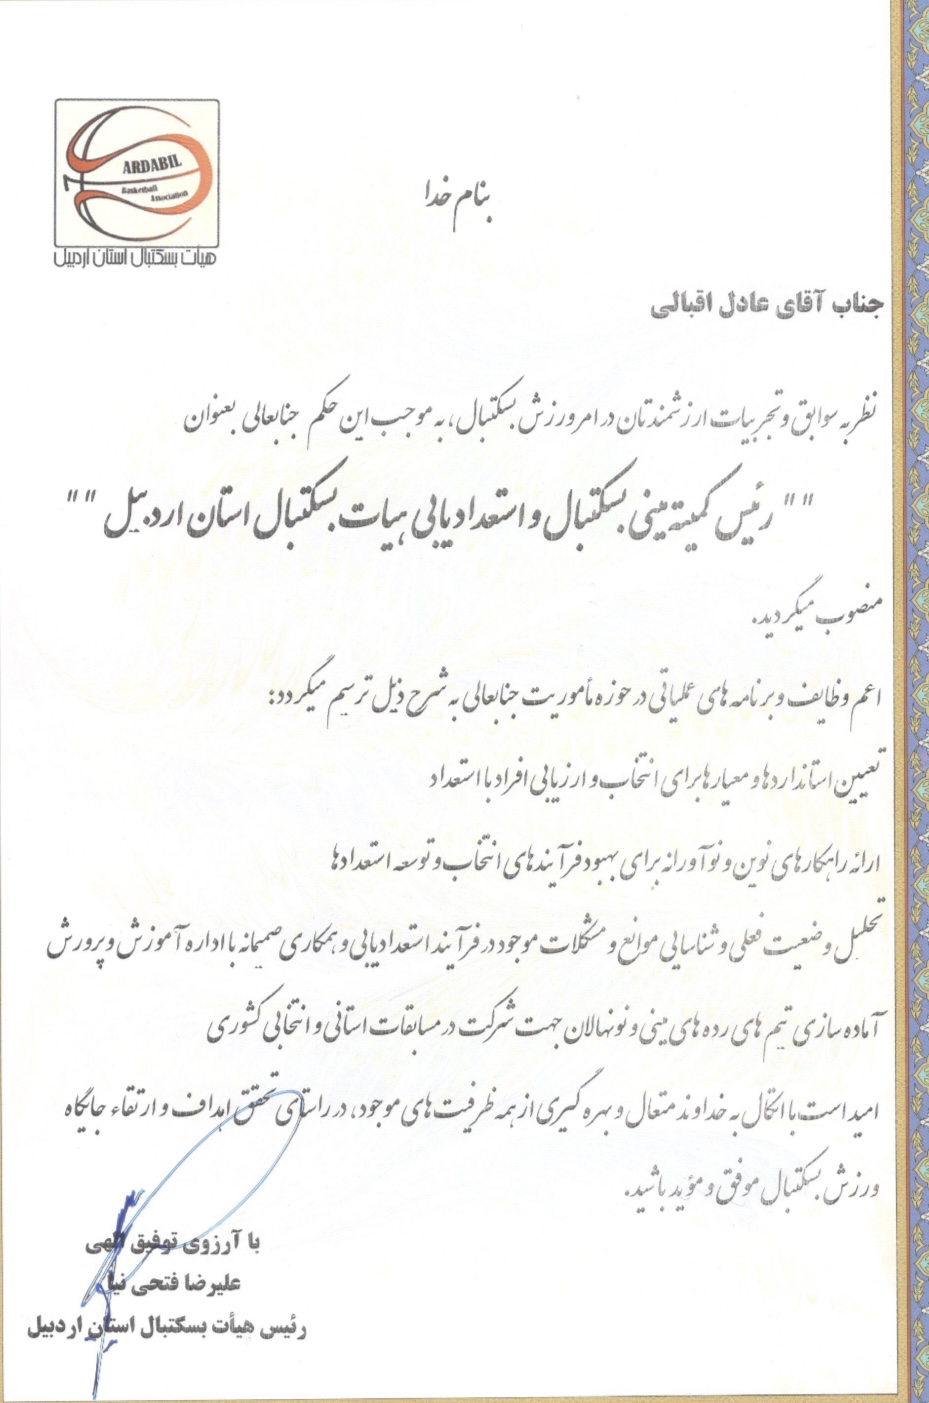 ARDABIL
Basketball
Association
هیأت بسکتبال استان اردبیل
بنام خدا
جناب آقای عادل اقبالی
نظر به سوابق و تجربیات ارزشمندتان در امر ورزش بسکتبال، به موجب این حکم جنابعالی بعنوان
" " رئیس کمیته مینی بسکتبال و استعدادیابی هیات بسکتبال استان اردبیل " "
منصوب میگردید.
اعم وظایف و برنامه های عملیاتی در حوزه مأموریت جنابعالی به شرح ذیل ترسیم میگردد:
تعیین استانداردها و معیارها برای انتخاب و ارزیابی افراد با استعداد
ارائه راهکارهای نوین و نوآورانه برای بهبود فرآیندهای انتخاب و توسعه استعدادها
تحلیل وضعیت فعلی و شناسایی موانع و مشکلات موجود در فرآیند استعدادیابی و همکاری صمیمانه با اداره آموزش و پرورش
آماده سازی تیم های رده های مینی و نونهالان جهت شرکت در مسابقات استانی و انتخابی کشوری
امید است با اتکال به خداوند متعال و بهره گیری از همه ظرفیت های موجود، در راستای تحقق اهداف و ارتقاء جایگاه
ورزش بسکتبال موفق و مؤید باشید.
با آرزوی توفیق الهی
علیرضا فتحی نیا
رئیس هیأت بسکتبال استان اردبیل